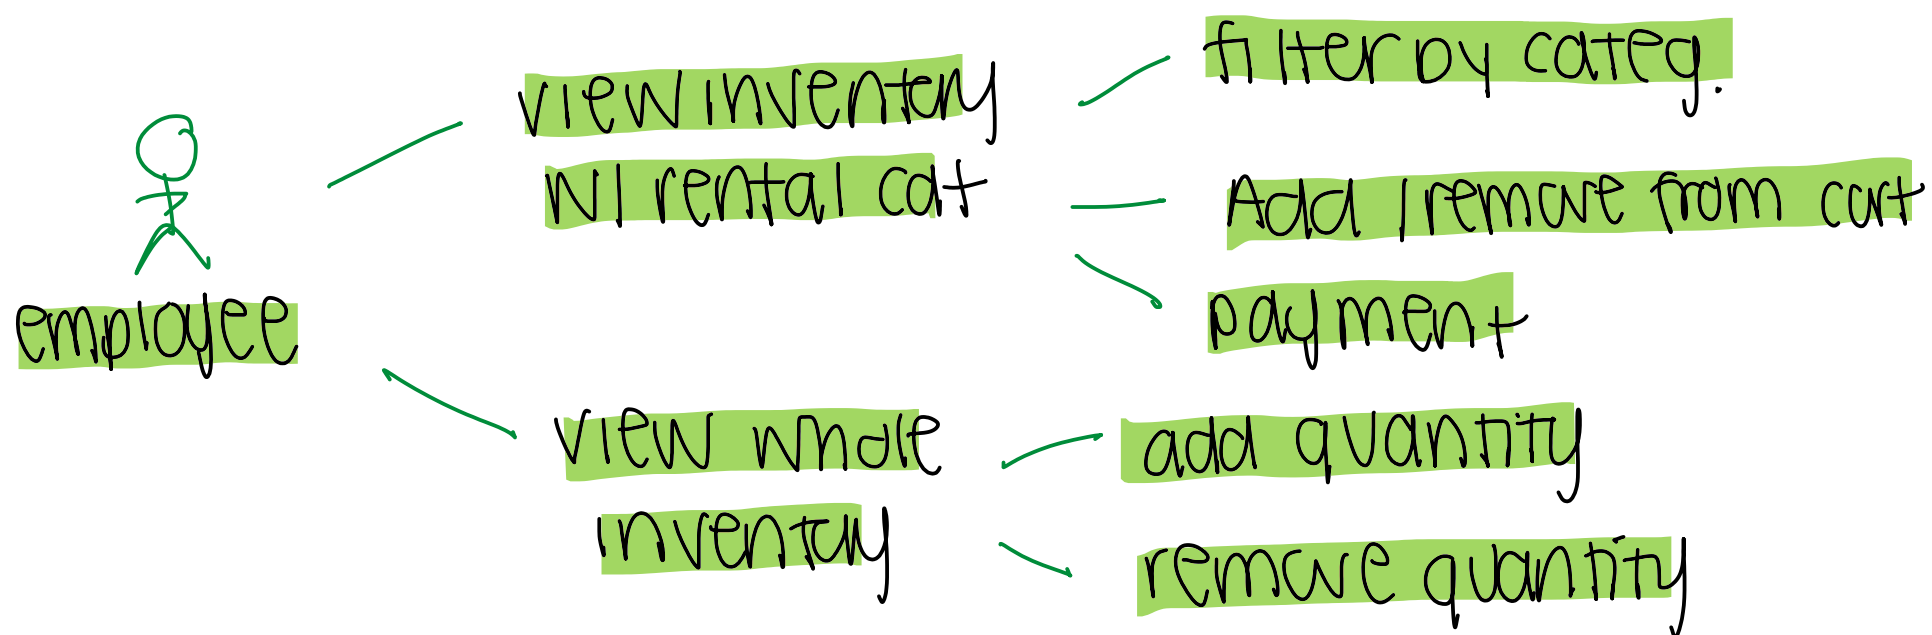 employee
view inventory
w/ rental cat
filter by categ.
Add / remove from cart
payment
view whole
inventory
add quantity
remove quantity